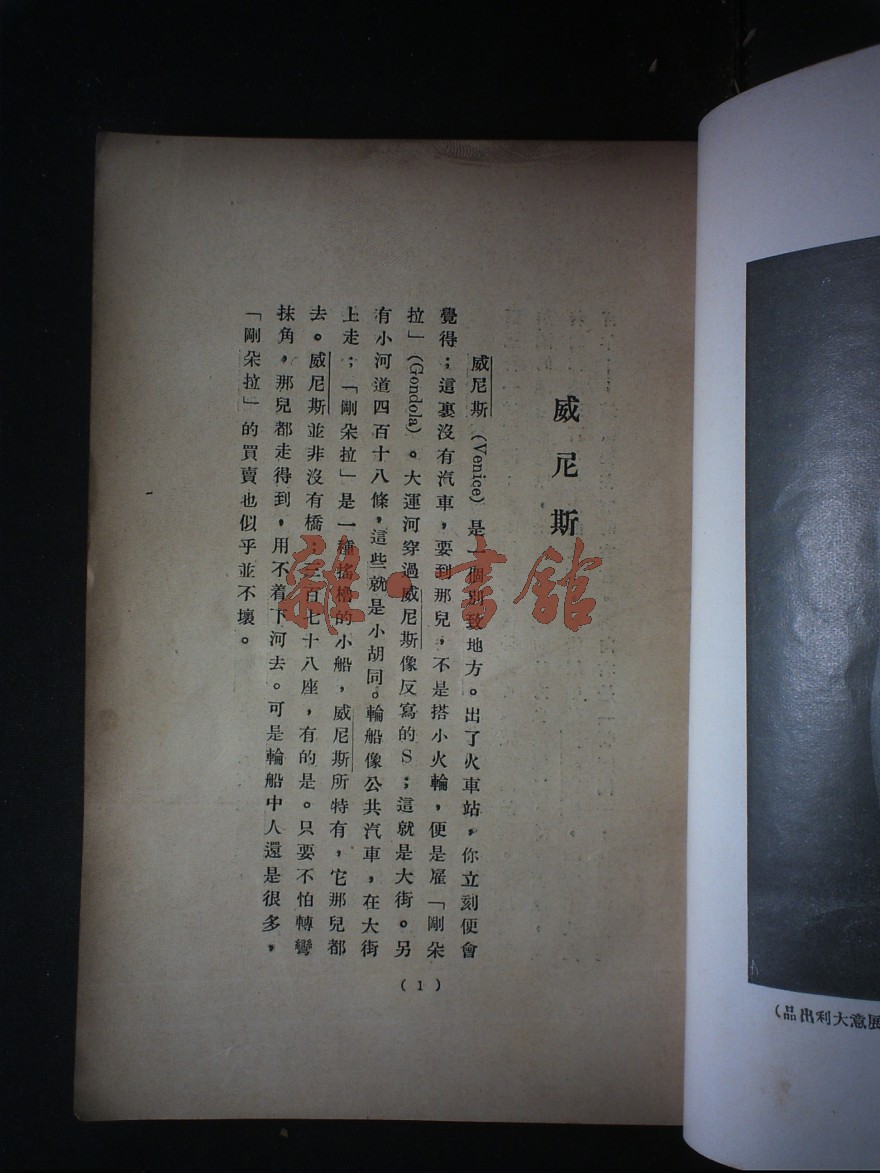 威尼斯
威尼斯（Venice）是一個別致地方。出了火車站，你立刻便會
覺得；這裏沒有汽車，要到那兒，不是搭小火輪，便是雇「剛朵
拉」（Gondola）。大運河穿過威尼斯像反寫的S；這就是大街。另
有小河道四百十八條，這些就是小胡同。輪船像公共汽車，在大街
上走；「剛朵拉」是一種搖櫓的小船，威尼斯所特有，它那兒都
去。威尼斯並非沒有橋；三百七十八座，有的是。只要不怕轉彎
抹角，那兒都走得到，用不着下河去。可是輪船中人還是很多，
「剛朵拉」的買賣也似乎並不壞。
(1)
雜·書館
展意大利出品）